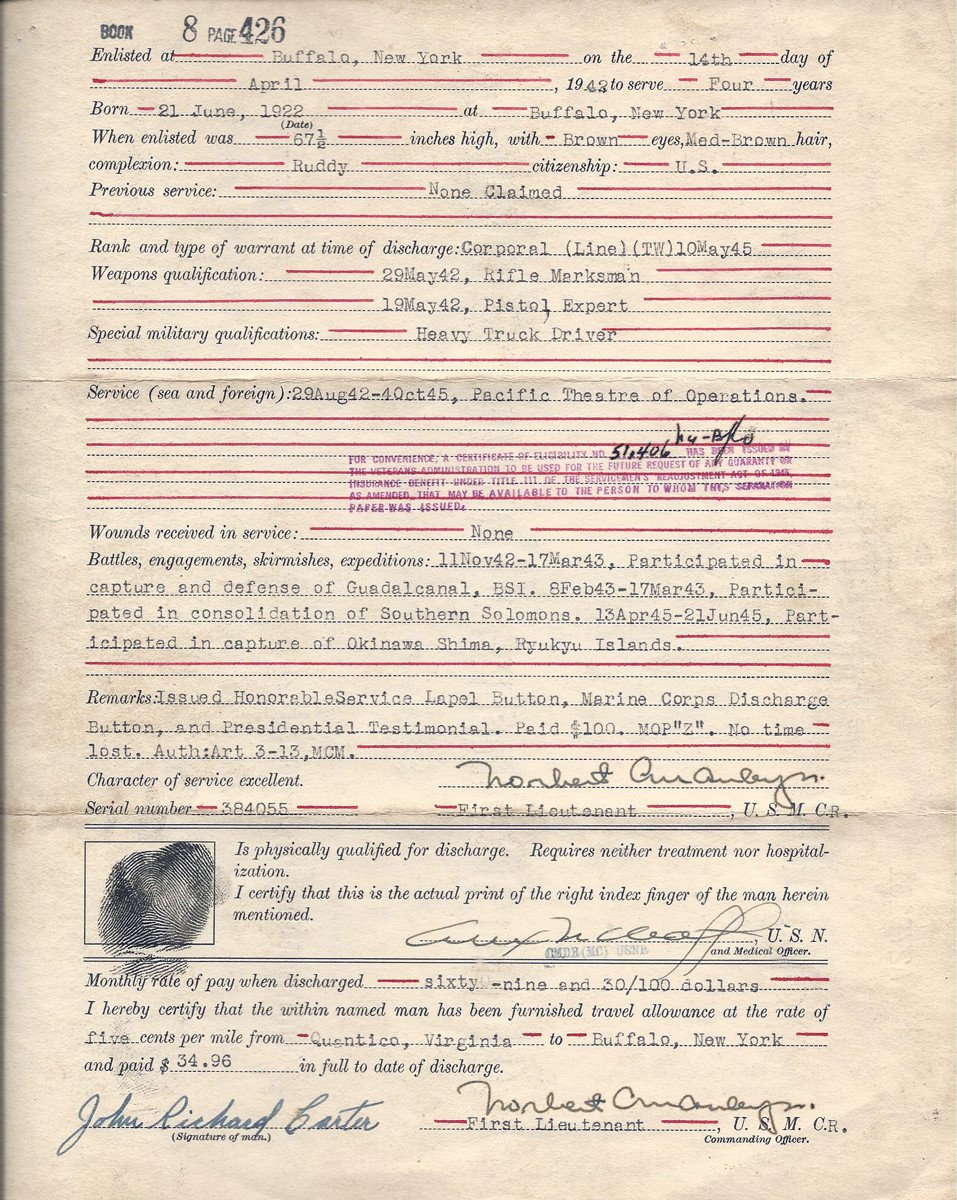 BOOK 8 PAGE 426
Enlisted at Buffalo, New York on the 14th day of
April, 1942 to serve Four years
Born 21 June, 1922 at Buffalo, New York
(Date)
When enlisted was 67½ inches high, with Brown eyes, Med-Brown hair,
complexion: Ruddy citizenship: U.S.
Previous service: None Claimed
Rank and type of warrant at time of discharge: Corporal (Line)(TW)10May45
Weapons qualification: 29May42, Rifle Marksman
19May42, Pistol Expert
Special military qualifications: Heavy Truck Driver
Service (sea and foreign): 29Aug42-4Oct45, Pacific Theatre of Operations.
FOR CONVENIENCE, A CERTIFICATE OF ELIGIBILITY NO. 51,406 HAS BEEN ISSUED BY
THE VETERANS ADMINISTRATION TO BE USED FOR THE FUTURE REQUEST OF ANY GUARANTY OR
INSURANCE BENEFIT UNDER TITLE III OF THE SERVICEMEN'S READJUSTMENT ACT OF 1944
AS AMENDED, THAT MAY BE AVAILABLE TO THE PERSON TO WHOM THIS SEPARATION
PAPER WAS ISSUED.
Wounds received in service: None
Battles, engagements, skirmishes, expeditions: 11Nov42-17Mar43, Participated in
capture and defense of Guadalcanal, BSI. 8Feb43-17Mar43, Partici-
pated in consolidation of Southern Solomons. 13Apr45-21Jun45, Part-
icipated in capture of Okinawa Shima, Ryukyu Islands.
Remarks: Issued HonorableService Lapel Button, Marine Corps Discharge
Button, and Presidential Testimonial. Paid $100. MOP"Z". No time
lost. Auth:Art 3-13,MCM.
Character of service excellent. Norbert
Serial number 384055 First Lieutenant, U. S. M. C.R.
Is physically qualified for discharge. Requires neither treatment nor hospital-
ization.
I certify that this is the actual print of the right index finger of the man herein
mentioned.
, U. S. N.
CMDR (MC) USNR and Medical Officer.
Monthly rate of pay when discharged sixty-nine and 30/100 dollars
I hereby certify that the within named man has been furnished travel allowance at the rate of
five cents per mile from Quantico, Virginia to Buffalo, New York
and paid $ 34.96 in full to date of discharge.
John Richard Carter Norbert
(Signature of man.) First Lieutenant, U. S. M. C.R.
Commanding Officer.